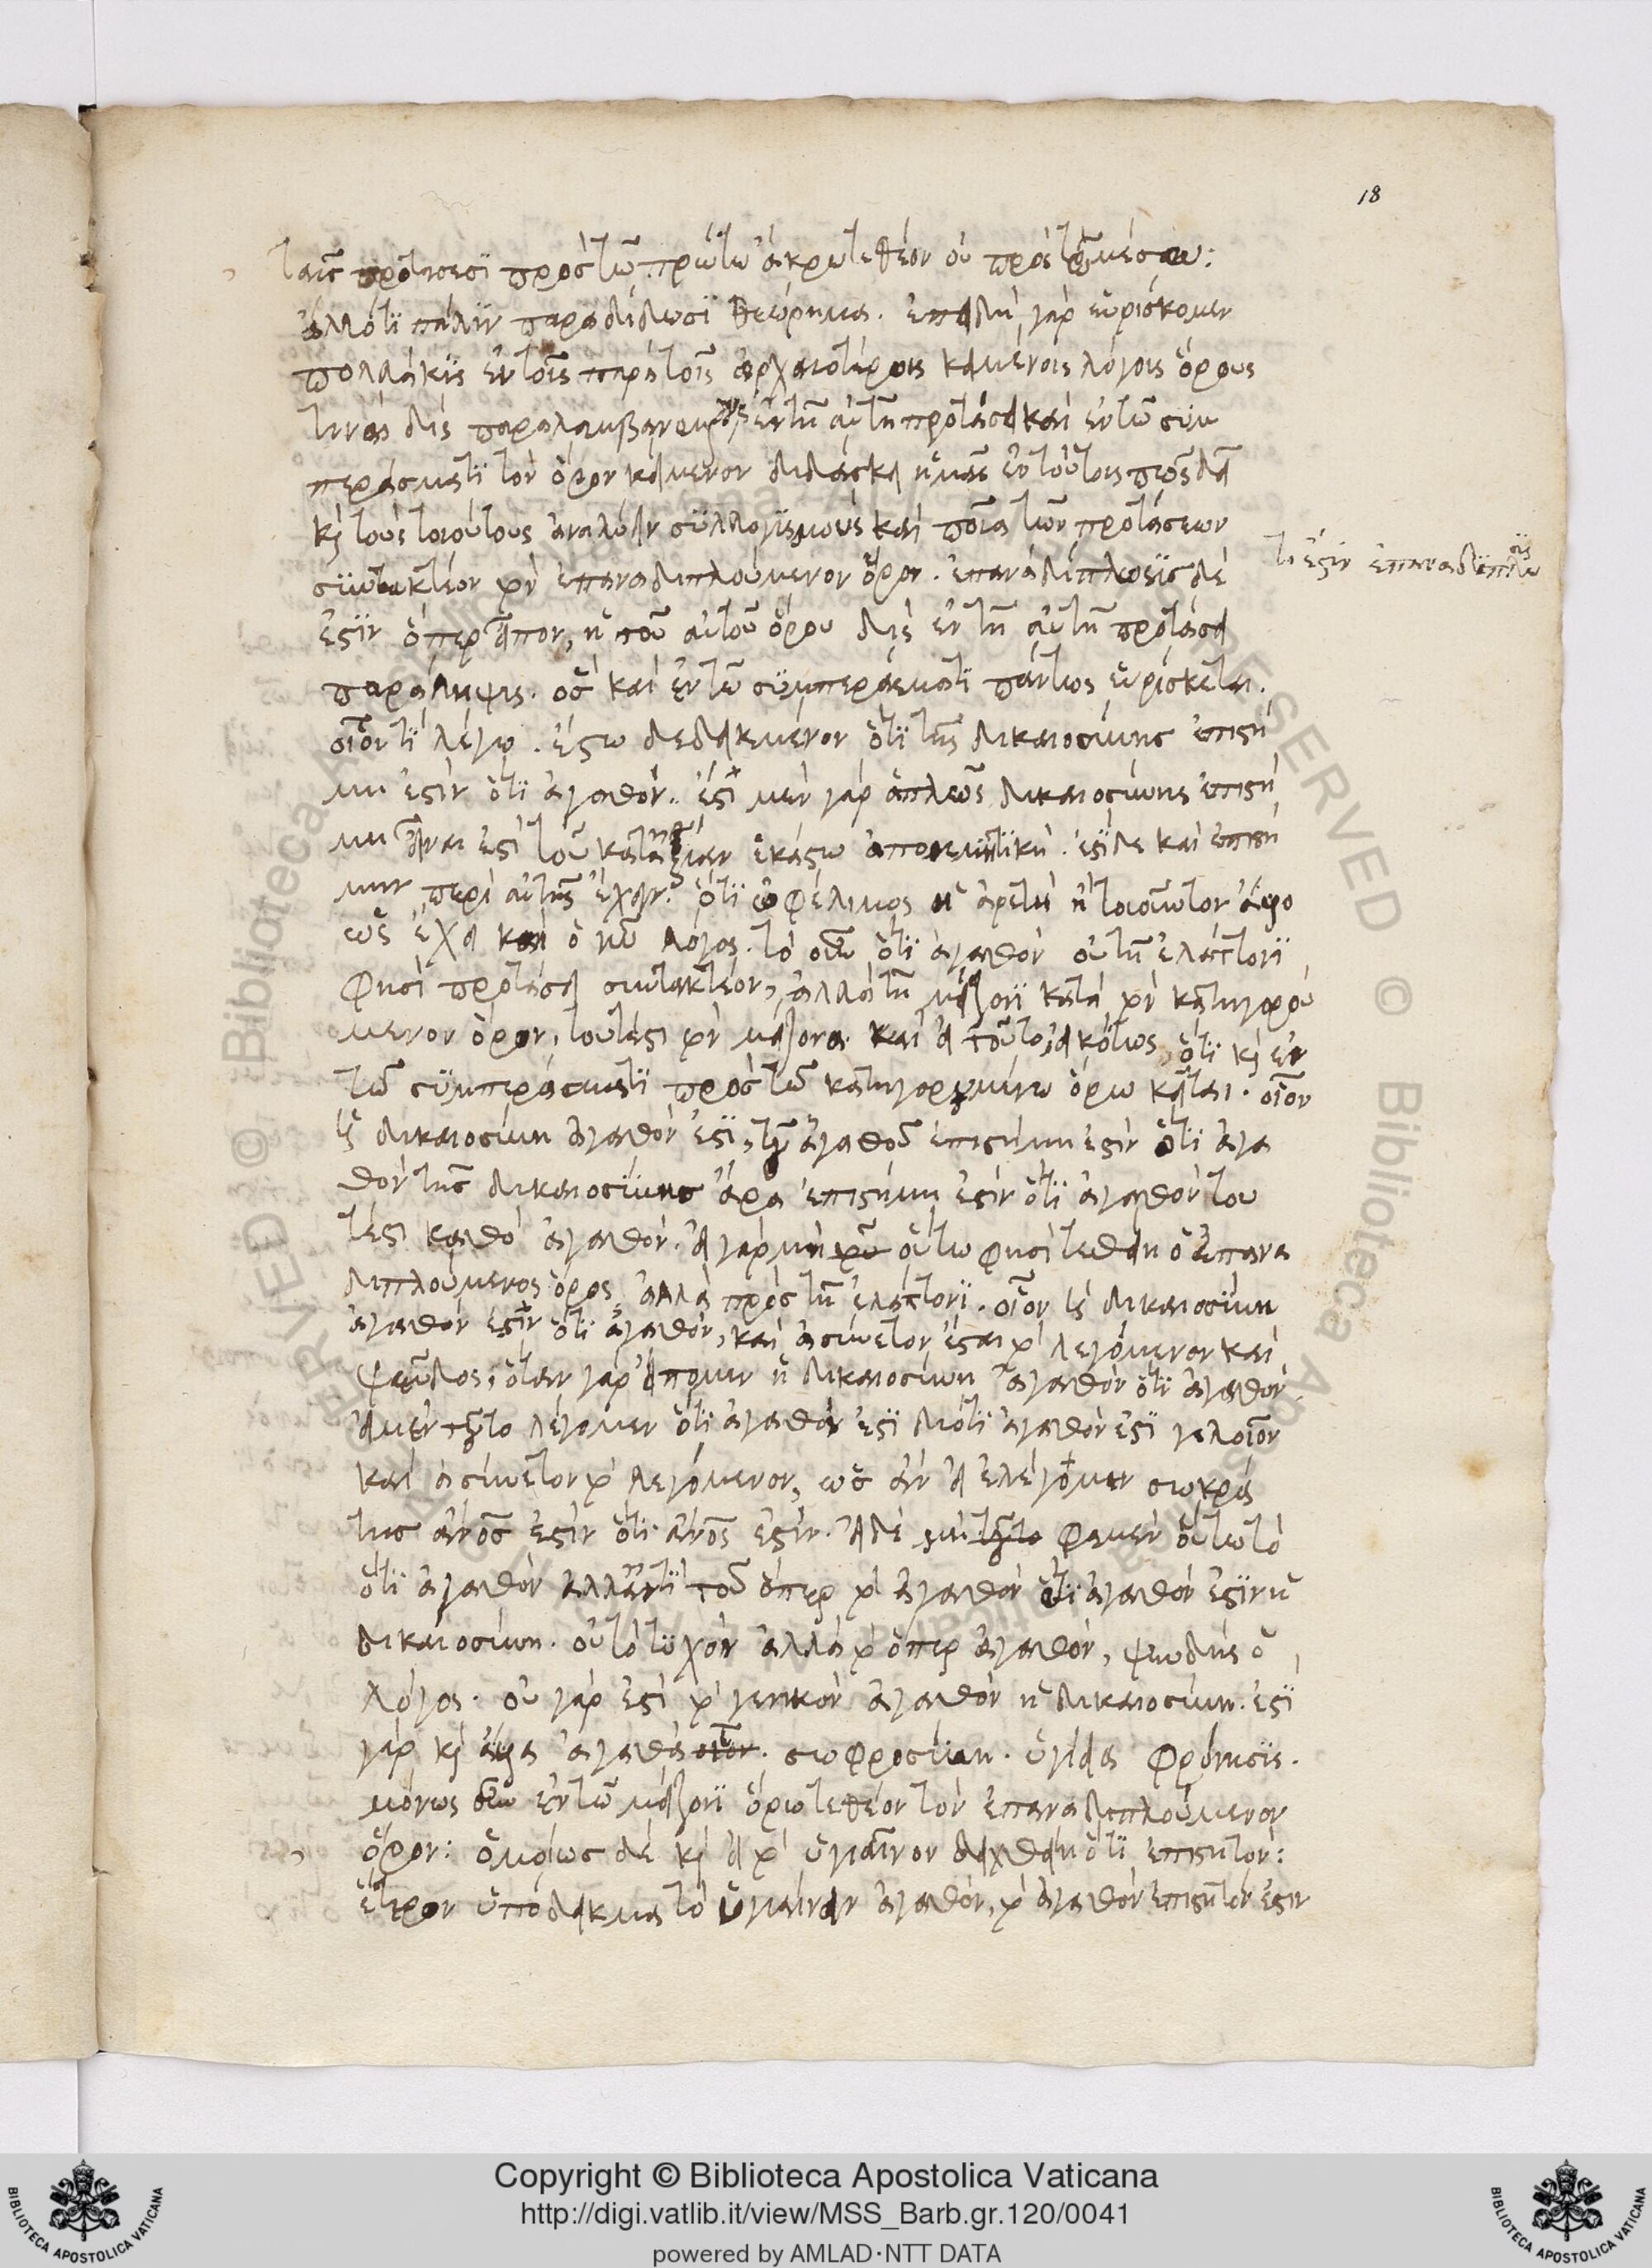 18
ταῖς προτάσεσι πρὸς τῶ πρώτω ἄκρω τεθέον οὐ πρὸς τῶ μέσω:
ἄλλό τι πάλιν παραδίδωσι θεώρημα. ἐπειδὴ γὰρ εὑρίσκομεν
πολλάκις ἐν τοῖς παρὰ τοῖς ἀρχαιοτέροις κειμένοις λόγοις ὅρους
τινὰς δὶς παραλαμβανομένους ἐν τῆ αὐτῆ προτάσει καὶ ἐν τῶ συμ
περάσματι τὸν ὅρον κείμενον διδάσκει ἡμᾶς ἐν τούτοις πῶς δεῖ
καὶ τοὺς τοιούτους ἀναλύειν συλλογισμοὺς καὶ ποία τῶν προτάσεων
συντακτέον τὸν ἐπαναδιπλούμενον ὅρον. ἐπαναδίπλωσις δέ
τί ἐστιν ἐπαναδίπλωσις
ἐστιν ὅπερ εἶπον, ἡ τοῦ αὐτοῦ ὅρου δὶς ἐν τῆ αὐτῆ προτάσει
παράληψις. ὃς καὶ ἐν τῶ συμπεράσματι πάντως εὑρίσκεται.
οἷόν τι λέγω. ἔστω δεδειγμένον ὅτι τῆς δικαιοσύνης ἐπιστή
μη ἐστὶν ὅτι ἀγαθόν. ἔστι μὲν γὰρ ἁπλῶς δικαιοσύνης ἐπιστή
μη εἶναι ἐστὶ τοῦ κατ' ἀξίαν ἑκάστω ἀπονεμητική. ἔστι δὲ καὶ ἐπιστή
μην περὶ αὐτῆς ἔχειν. ὅτι ὠφέλιμος ἡ ἀρετὴ ἢ τοιοῦτον
ὡς ἔχει καὶ ὁ νῦν λόγος. τὸ οὖν ὅτι ἀγαθὸν οὐ τῆ ἐλάττονι
φησὶ προτάσει συντακτέον, ἀλλὰ τῆ μείζονι κατὰ τὸν κατηγορού
μενον ὅρον, τουτέστι τὸν μείζονα. καὶ τοῦτο εἰκότως, ὅτι καὶ ἐν
τῶ συμπεράσματι πρὸς τῶ κατηγορουμένω ὅρω κεῖται. οἷον
ἡ δικαιοσύνη ἀγαθόν ἐστι, τοῦ ἀγαθοῦ ἐπιστήμη ἐστὶν ὅτι ἀγα
θὸν τῆς δικαιοσύνης ἄρα ἐπιστήμη ἐστὶν ὅτι ἀγαθὸν του
τέστι καθὸ ἀγαθόν. εἰ γὰρ μὴ οὕτω φησὶ τεθείη ὁ ἐπανα
διπλούμενος ὅρος, ἀλλὰ πρὸς τῆ ἐλάττονι. οἷον ἡ δικαιοσύνη
ἀγαθόν ἐστιν ὅτι ἀγαθόν, καὶ ἀσύνετον ἔσται τὸ λεγόμενον καὶ
ψεῦδος, ὅταν γὰρ εἴπομεν ἡ δικαιοσύνη ἀγαθὸν ὅτι ἀγαθόν.
εἰ μὲν τοῦτο λέγομεν ὅτι ἀγαθόν ἐστι διότι ἀγαθόν ἐστι γελοῖον
καὶ ἀσύνετον τὸ λεγόμενον, ὡς ἂν εἰ ἐλέγομεν σωκρά
της ἄνθρωπός ἐστιν ὅτι ἄνθρωπός ἐστιν. εἰ δὲ μὴ τοῦτο φαμὲν οὕτω τὸ
ὅτι ἀγαθὸν ἀλλ' ἀντὶ τοῦ ὅπερ τὸ ἀγαθὸν ὅτι ἀγαθόν ἐστιν ἡ
δικαιοσύνη. οὐ τὸ τυχὸν ἀλλὰ τὸ ὅπερ ἀγαθόν, ψευδὴς ὁ
λόγος. οὐ γάρ ἐστι τὸ γενικὸν ἀγαθὸν ἡ δικαιοσύνη. ἔστι
γὰρ καὶ ἄλλα ἀγαθὰ οἷον. σωφροσύνη. ὑγίεια φρόνησις.
μόνως οὖν ἐν τῶ μείζονι ὅρω τεθέον τὸν ἐπαναδιπλούμενον
ὅρον: ὁμοίως δὲ καὶ εἰ τὸ ὑγιεινὸν δειχθείη ὅτι ἐπιστητόν:
ἕτερον ὑπόδειγμα τὸ ὑγιαίνειν ἀγαθόν, τὸ ἀγαθὸν ἐπιστητόν ἐστιν
Copyright © Biblioteca Apostolica Vaticana
http://digi.vatlib.it/view/MSS_Barb.gr.120/0041
powered by AMLAD·NTT DATA